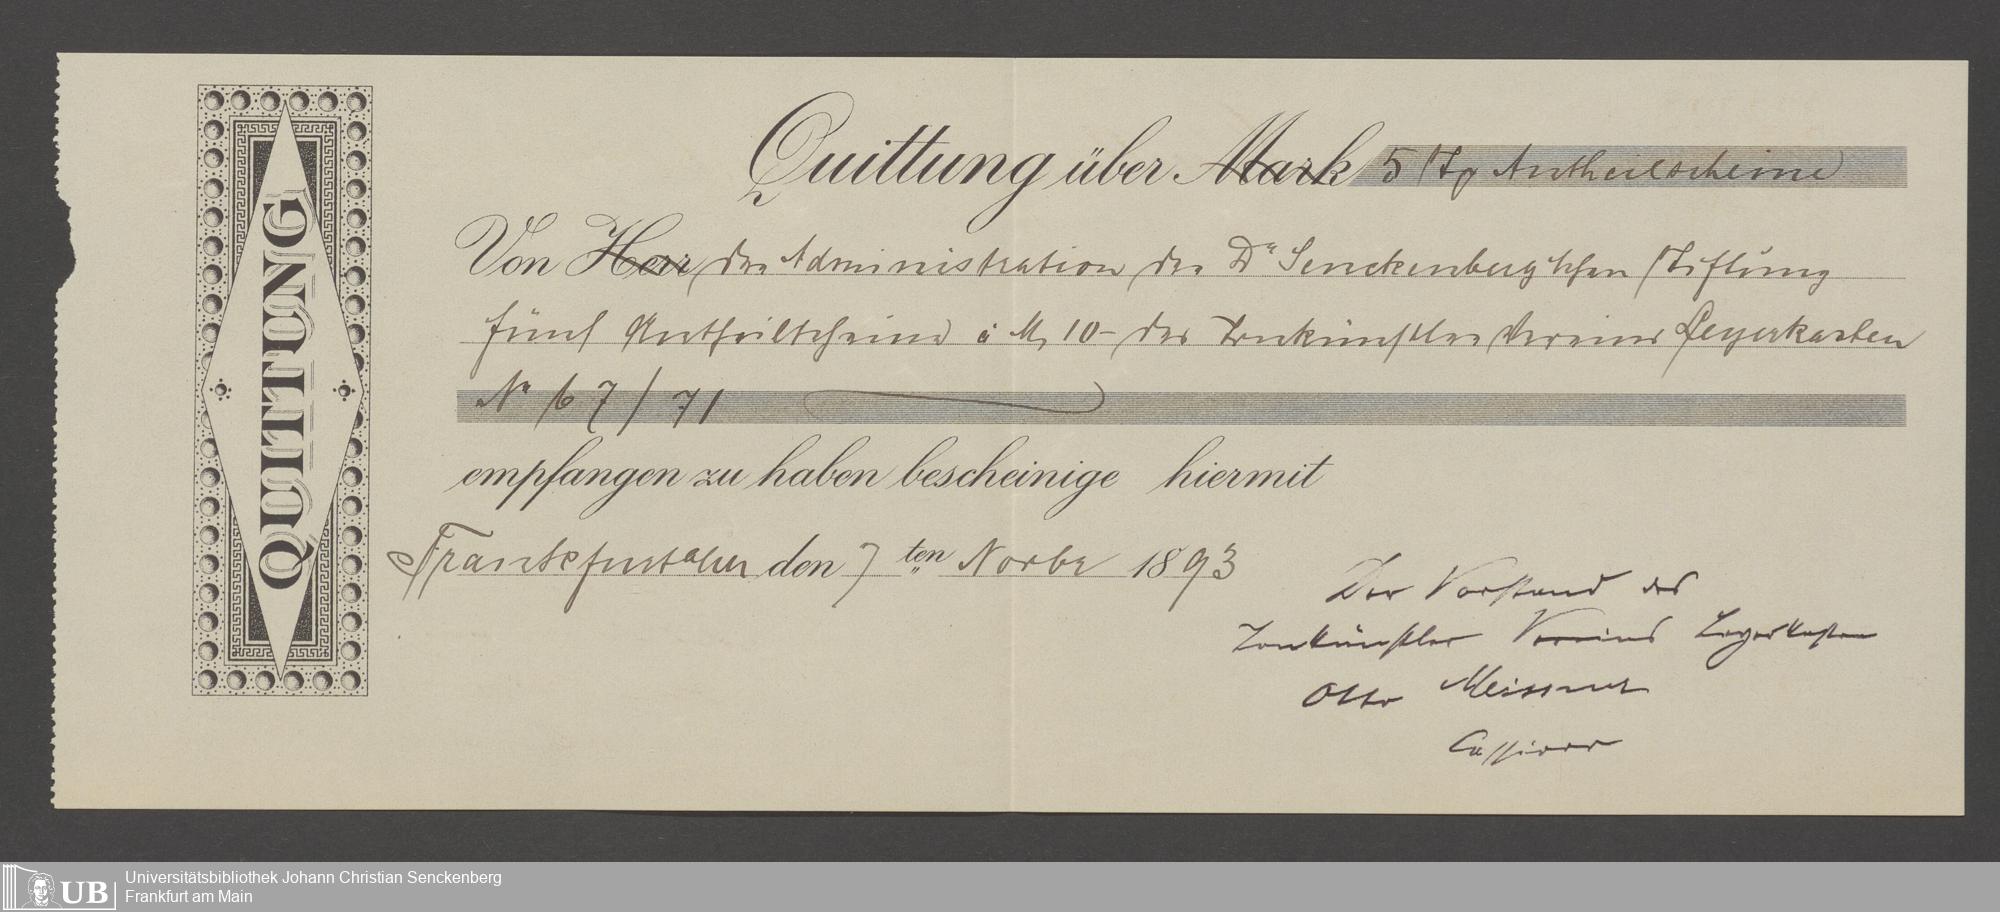 QUITTUNG
Quittung über Mark 5 Stg Antheilscheine
Von Herr der Administration der Dr Senckenbergischen Stiftung
fünf Antheilscheine à M 10– des Tonkünstler Vereins Leyerkasten
No 67/71
empfangen zu haben bescheinige hiermit
Frankfurt a/M den 7 ten Novbr 1893
Der Vorstand des
Tonkünstler Vereins Leyerkasten
Otto Meissner
Cassirer
UB
Universitätsbibliothek Johann Christian Senckenberg
Frankfurt am Main